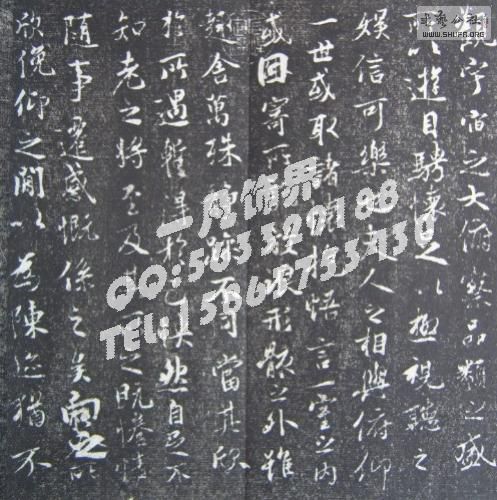 觀宇宙之大俯察品類之盛
所以遊目騁懷足以極視聽之
娛信可樂也夫人之相與俯仰
一世或取諸懷抱悟言一室之內
或因寄所託放浪形骸之外雖
趣舍萬殊靜躁不同當其欣
於所遇蹔得於己快然自足不
知老之將至及其所之既惓情
隨事遷感慨係之矣向之所
欣俛仰之閒以為陳迹猶不
书艺公社
WWW.SHUFA.ORG
一凡饰界
QQ:583329188
TEL: